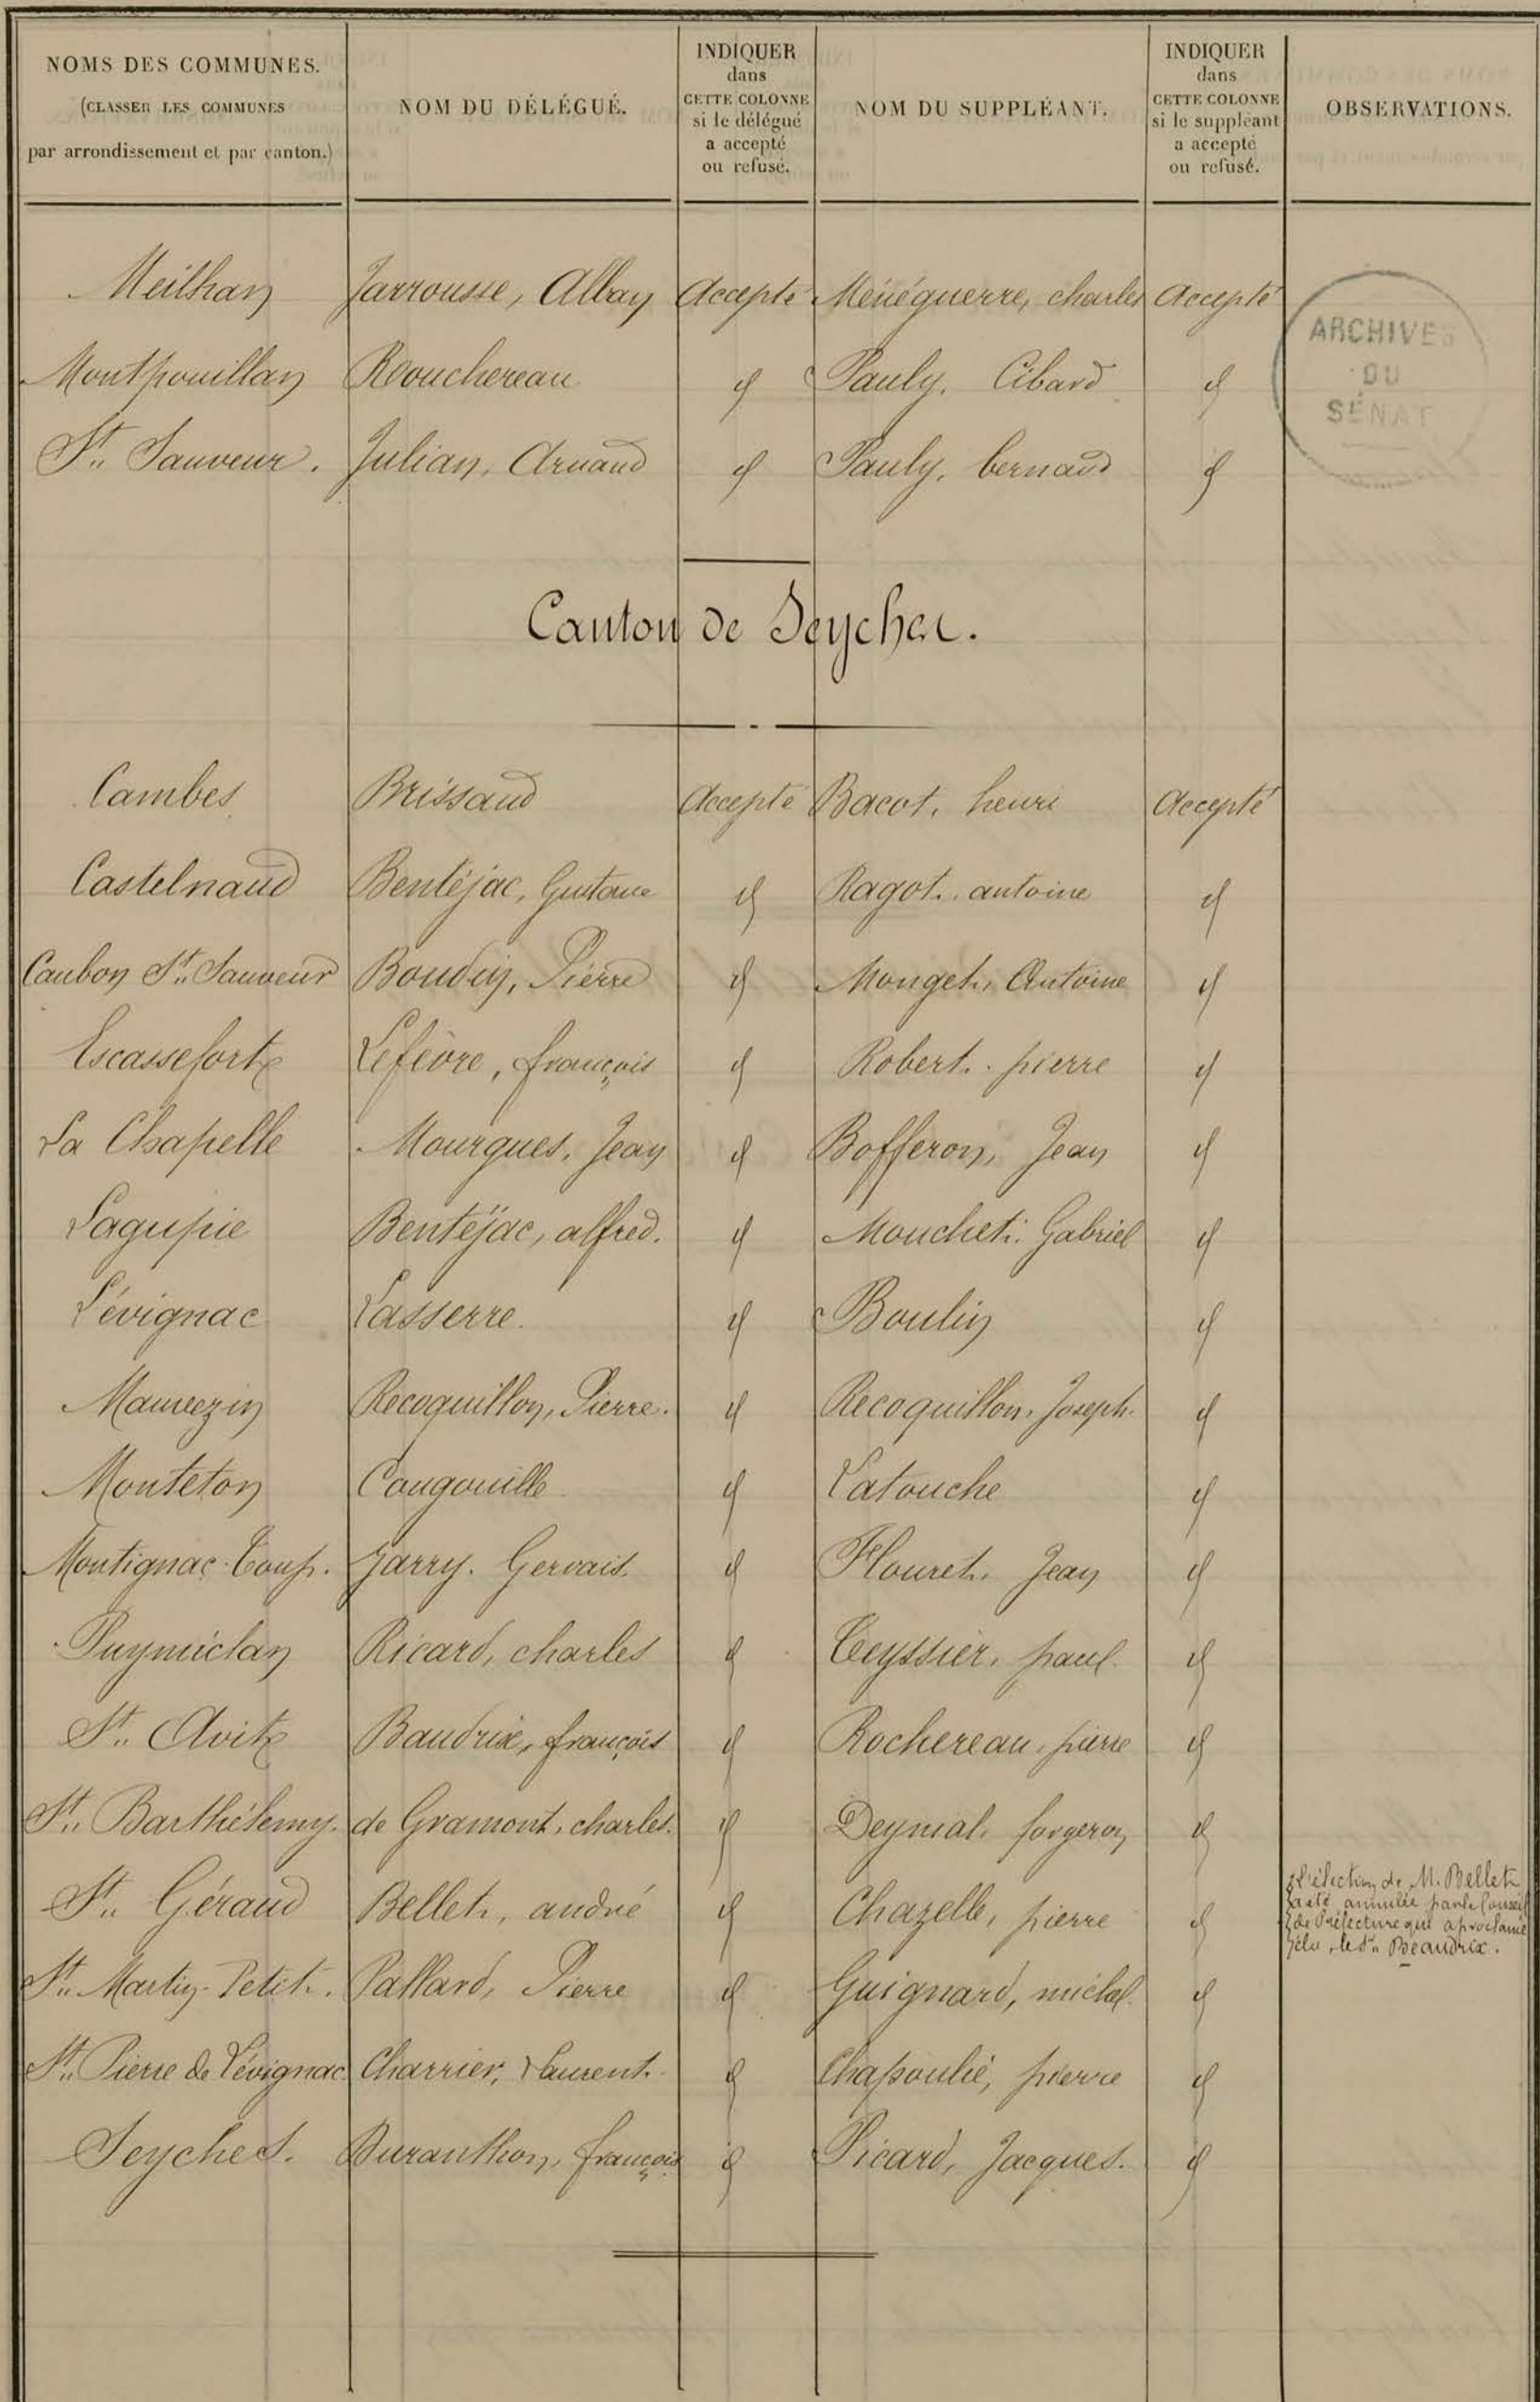 NOMS DES COMMUNES.
(CLASSER LES COMMUNES
par arrondissement et par canton.)
NOM DU DÉLÉGUÉ.
INDIQUER
dans
CETTE COLONNE
si le délégué
a accepté
ou refusé.
NOM DU SUPPLÉANT.
INDIQUER
dans
CETTE COLONNE
si le suppléant
a accepté
ou refusé.
OBSERVATIONS.
ARCHIVES
DU
SÉNAT
Meilhan Jarrousse, Alban Accepté Ménéguerre, charles Accepté
Montpouillan Rouchereau d Pauly, Cibard d
St. Sauveur. Julian, Arnaud d Pauly, bernard d
Canton de Seyches.
Cambes Brissaud Accepté Bacot, henri Accepté
Castelnaud Bentéjac, Gustave d Ragot, antoine d
Caubon St. Sauveur Boudin, Pierre d Monget, Antoine d
Escassefort Lefèvre, françois d Robert, pierre d
La Chapelle Mourgues, Jean d Bofferon, Jean d
Lagupie Bentéjac, alfred. d Mouchet, Gabriel d
Lévignac Lasserre. d Boulin d
Mauvezin Recoquillon, Pierre. d Recoquillon, Joseph. d
Monteton Cougouille d Latouche d
Montignac-Toup. Jarry. Gervais. d Flouret, Jean d
Puymiclan Ricard, charles d Teyssier, paul. d
St. Avit Baudrix, françois d Rochereau, pierre d
St. Barthélemy. de Gramont, charles. d Deymal, forgeron d
St. Géraud Bellet, andré d Chazelle, pierre d
L'élection de M. Bellet
a été annulée par le Conseil
de Préfecture qui a proclamé
élu, le Sr. Beaudrix.
St. Martin-Petit. Pallard, Pierre d Guignard, michel. d
St. Pierre de Lévignac Charrier, Laurent. d Chapoulié, pierre d
Seyches. Duranthon, françois d Picard, Jacques. d